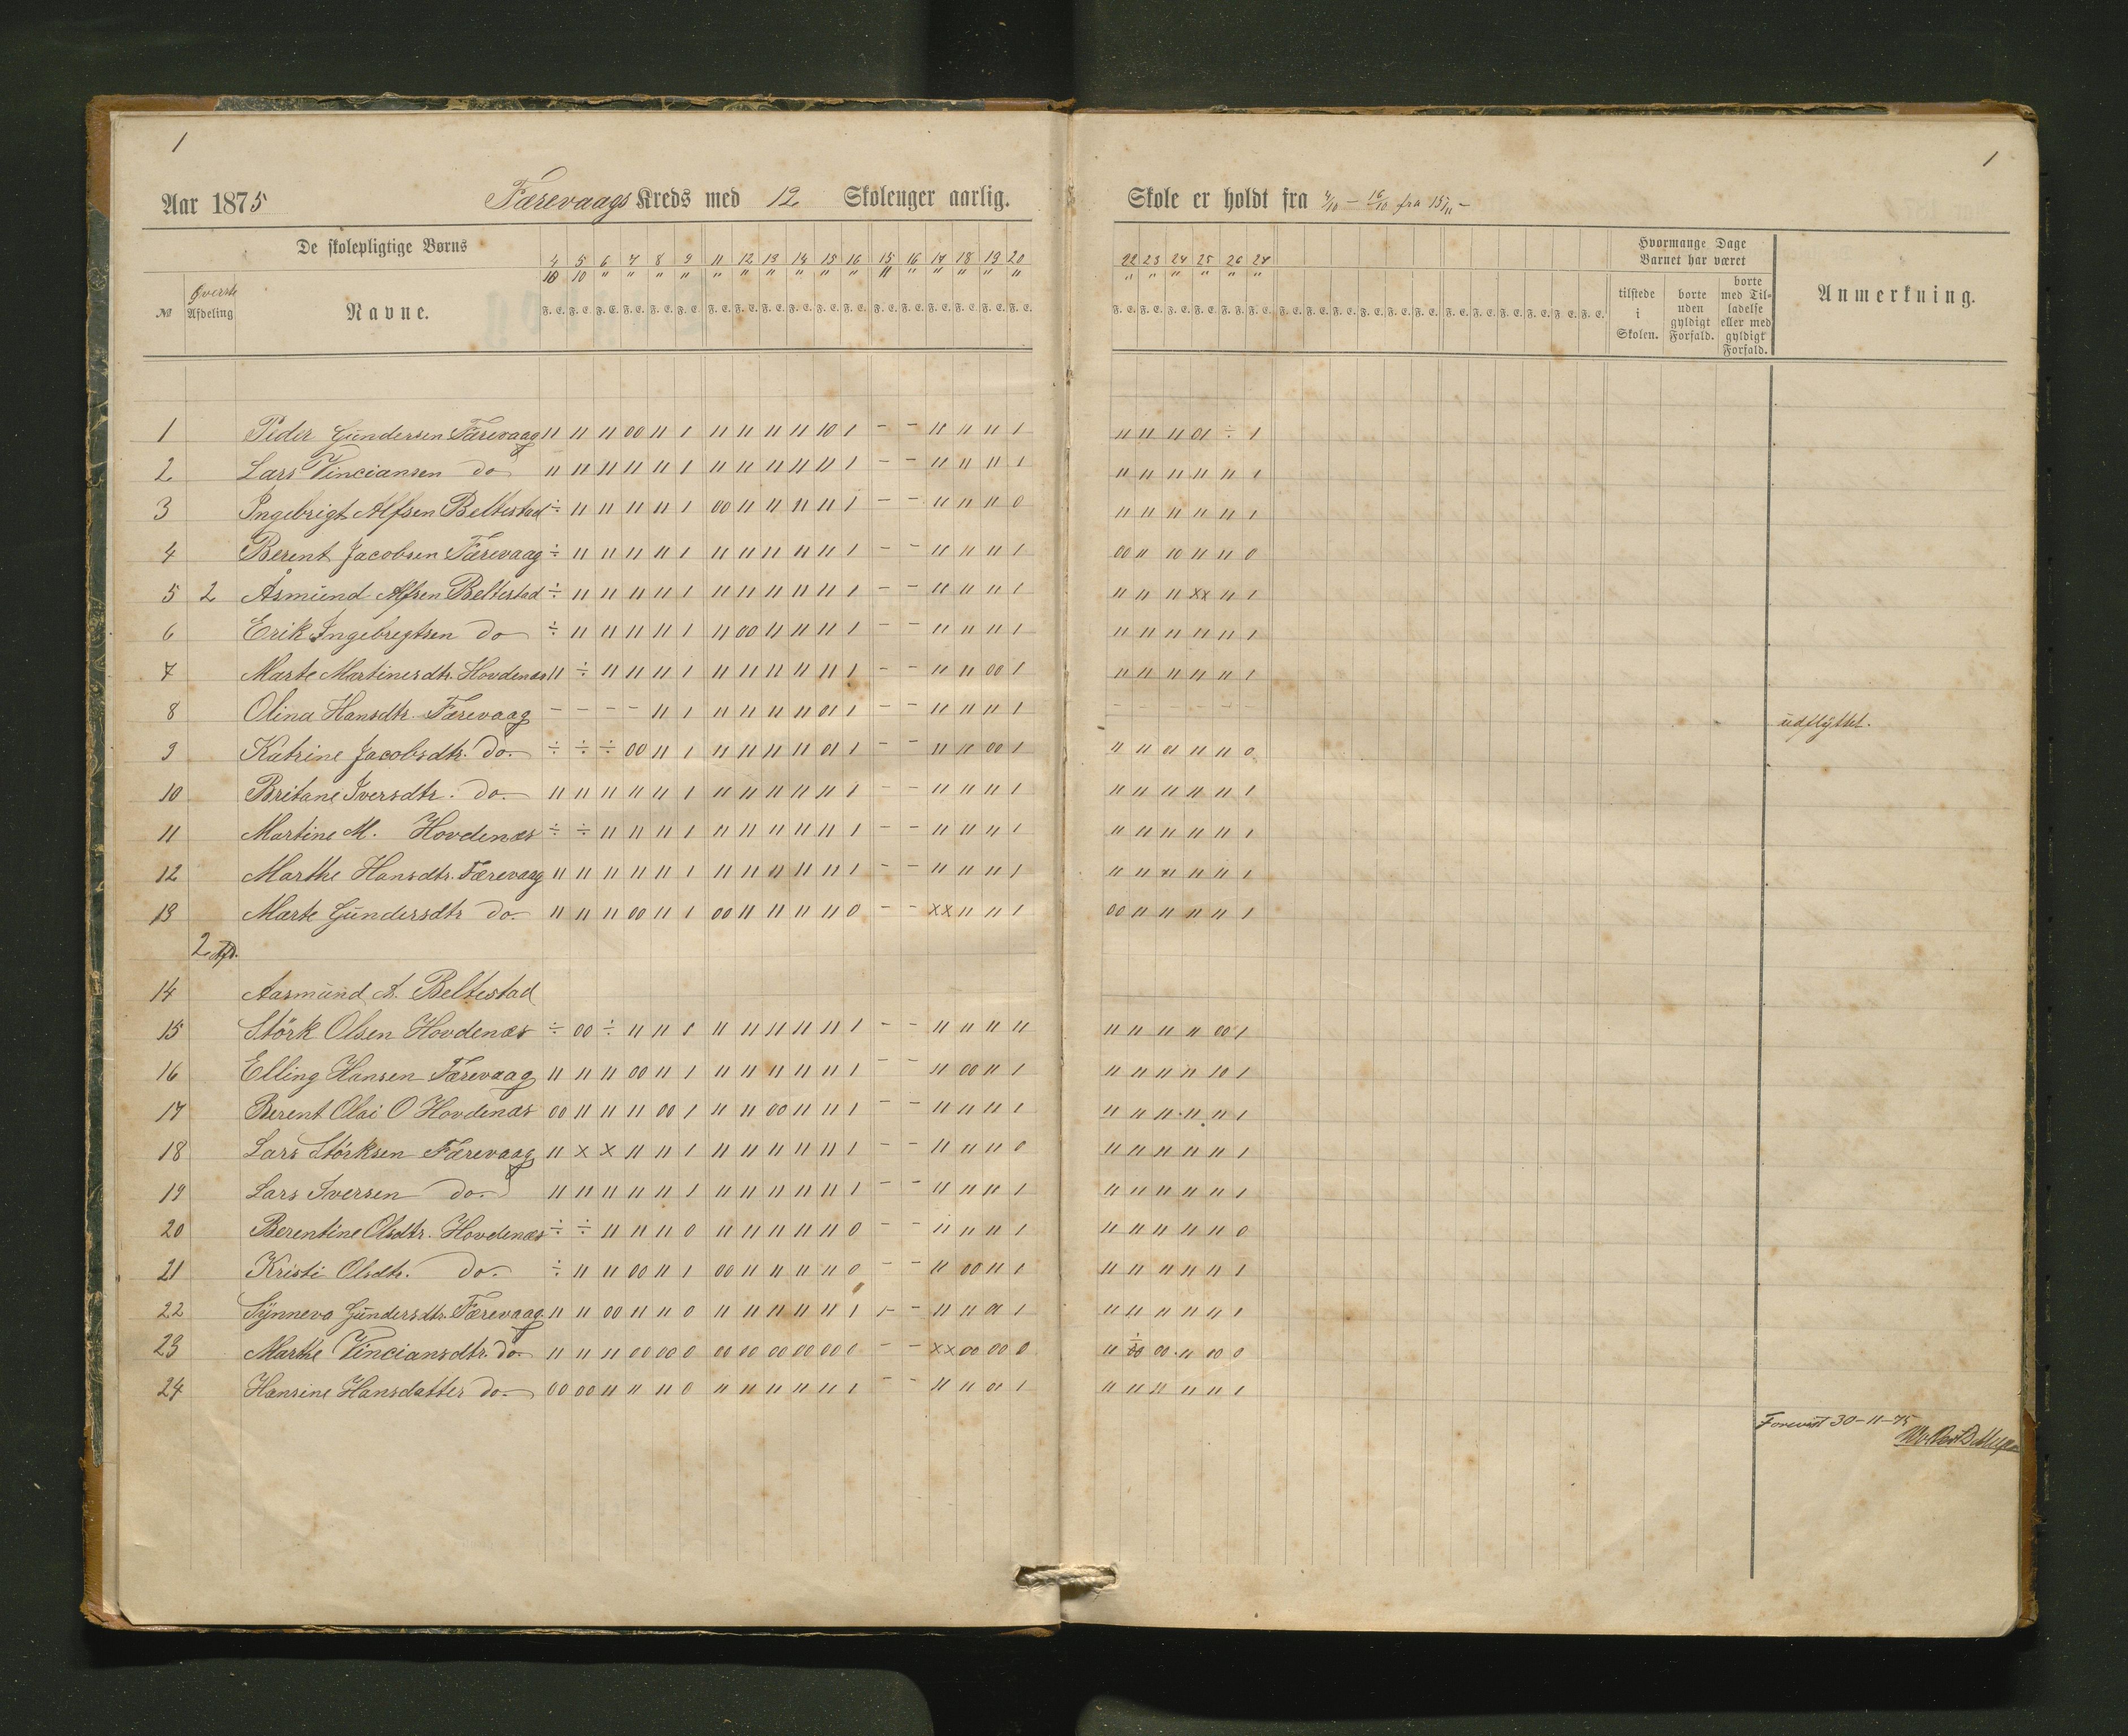 1
Aar 1875 Færevaags Kreds med 12 Skoleuger aarlig.
De skolepligtige Børns
4 5 6 7 8 9 11 12 13 14 15 16 15 16 17 18 19 20
10 10 " " " " " " " " " " 11 " " " " "
No Øverste Afdeling Navne.
F. E. F. E. F. E. F. E. F. E. F. E. F. E. F. E. F. E. F. E. F. E. F. E. F. E. F. E. F. E. F. E. F. E. F. E.
1 Peder Gundersen Færevaag 11 11 11 00 11 1 11 11 11 11 10 1 - - 11 11 11 1
2 Lars Vinciansen do 11 11 11 11 11 1 11 11 11 11 11 1 - - 11 11 11 1
3 Ingebrigt Alfsen Beltestad ÷ 11 11 11 11 1 00 11 11 11 11 1 - - 11 11 11 0
4 Berent Jacobsen Færevaag ÷ 11 11 11 11 1 11 11 11 11 11 1 - - 11 11 11 1
5 2 Åsmund Alfsen Beltestad ÷ 11 11 11 11 1 11 11 11 11 11 1 - - 11 11 11 1
6 Erik Ingebregtsen do ÷ 11 11 11 11 1 11 00 11 11 11 1 - - 11 11 11 1
7 Marte Martinesdtr. Hovdenæs 11 ÷ 11 11 11 1 11 11 11 11 11 1 - - 11 11 00 1
8 Olina Hansdtr. Færevaag - - - - 11 1 11 11 11 11 01 1 - - 11 11 11 1
9 Katrine Jacobsdtr. do. ÷ ÷ ÷ 00 11 1 11 11 11 11 01 1 - - 11 11 00 1
10 Britane Iversdtr. do. 11 11 11 11 11 1 11 11 11 11 11 1 - - 11 11 11 1
11 Martine M. Hovdenæs ÷ ÷ 11 11 11 1 11 11 11 11 11 1 - - 11 11 11 1
12 Marthe Hansdtr. Færevaag 11 11 11 11 11 1 11 11 11 11 11 1 - - 11 11 11 1
13 Marte Gundersdtr do. 11 11 11 00 11 1 00 11 11 11 11 0 - - xx 11 11 1
2 Afd.
14 Aasmund A. Beltestad
15 Störk Olsen Hovdenæs ÷ 00 ÷ 11 11 1 11 11 11 11 11 1 - - 11 11 11 11
16 Elling Hansen Færevaag 11 11 11 00 11 1 11 11 11 11 11 1 - - 11 00 11 1
17 Berent Olai O Hovdenæs 00 11 11 11 00 1 11 11 00 11 11 1 - - 11 11 11 1
18 Lars Störksen Færevaag 11 x x 11 11 1 11 11 11 11 11 1 - - 11 11 11 0
19 Lars Iversen do. 11 11 11 11 11 1 11 11 11 11 11 1 - - 11 11 11 1
20 Berentine Olsdtr. Hovdenæs ÷ ÷ 11 11 11 0 11 11 11 11 11 0 - - 11 11 11 1
21 Kristi Olsdtr. do. ÷ 11 11 00 11 1 00 11 11 11 11 0 - - 11 00 11 1
22 Synneva Gundersdtr. Færevaag 11 11 00 11 11 0 11 11 11 11 11 1 1- - 11 11 01 1
23 Marthe Vinciansdtr. do. 11 11 11 00 00 0 00 00 00 00 00 0 - - xx 00 00 0
24 Hansine Hansdatter do. 00 00 11 11 11 0 11 11 11 11 11 1 - - 11 11 01 1
1
Skole er holdt fra 4/10 - 16/10 fra 15/11 -
22 23 24 25 26 27
" " " " " "
F. E. F. E. F. E. F. E. F. E. F. E. F. E. F. E. F. E. F. E. F. E. F. E. F. E. F. E. F. E. F. E. F. E. F. E.
Hvormange Dage
Barnet har været
tilstede i Skolen.
borte uden gyldigt Forfald.
borte med Tilladelse eller med gyldigt Forfald.
Anmerkning.
11 11 11 01 ÷ 1
11 11 11 11 11 1
11 11 11 11 11 1
00 11 10 11 11 0
11 11 11 xx 11 1
11 11 11 11 11 1
11 11 11 11 11 1
- - - udflyttet.
11 11 01 11 11 0
11 11 11 11 11 1
11 11 11 11 11 1
11 11 11 11 11 1
00 11 11 11 11 1
11 11 11 11 00 1
11 11 11 11 10 1
11 11 11 11 11 1
11 11 11 11 11 1
11 11 11 11 11 1
11 11 11 11 11 0
11 11 11 11 11 1
11 11 11 11 11 1
11 ÷ 00 00 11 00 0
11 11 11 11 11 1
Forevist 30-11-75